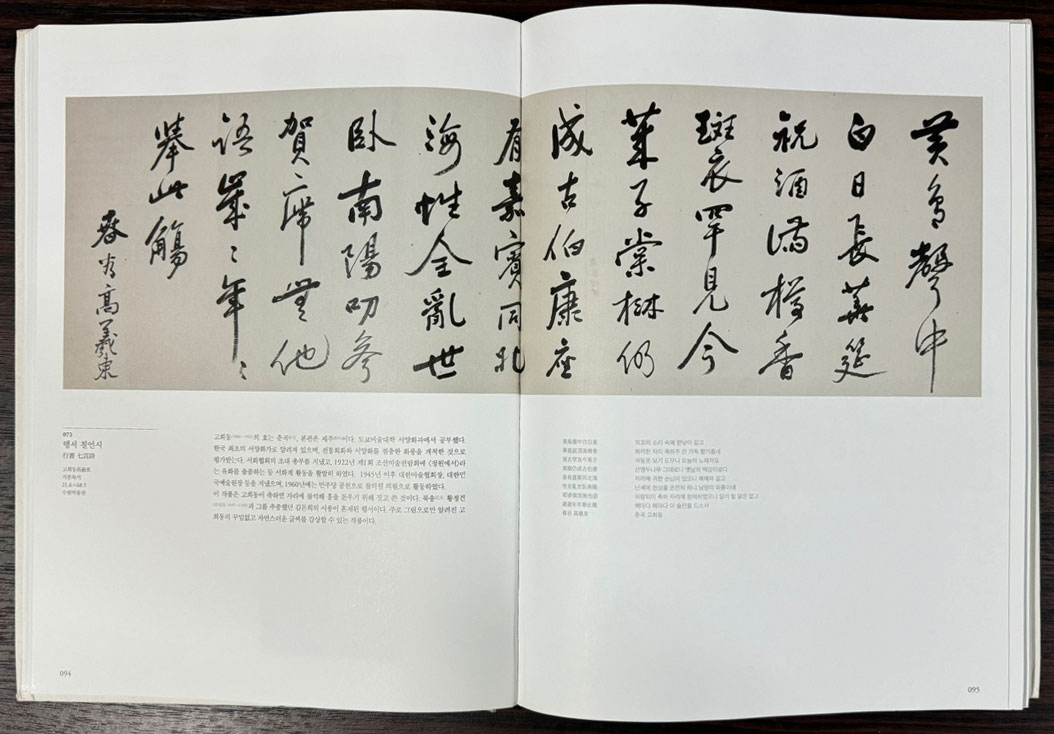 黃鳥聲中
白日長華筵
祝酒滿樽香
斑衣罕見今
萊子棠棣仍
成古伯康座
有嘉賓同北
海性全亂世
臥南陽叨參
賀席無他
語歲〻年〻
擧此觴
春谷高羲東
073
행서 칠언시
行書 七言詩
고희동高羲東
지본묵서
21.6×68.5
수원박물관
고희동의 호는 춘곡, 본관은 제주이다. 도쿄미술대학 서양화과에서 공부했다.
한국 최초의 서양화가로 알려져 있으며, 전통회화와 서양화를 절충한 화풍을 개척한 것으로
평가받는다. 서화협회의 초대 총무를 지냈고, 1922년 제1회 조선미술전람회에 《정원에서》라
는 유화를 출품하는 등 서화계 활동을 활발히 하였다. 1945년 이후 대한미술협회장, 대한민
국예술원장 등을 지냈으며, 1960년에는 민주당 공천으로 참의원 의원으로 활동하였다.
이 작품은 고희동이 축하연 자리에 참석해 흥을 돋우기 위해 짓고 쓴 것이다. 북송 황정견
과 그를 추종했던 김돈희의 서풍이 혼재된 행서이다. 주로 그림으로만 알려진 고
희동의 꾸밈없고 자연스러운 글씨를 감상할 수 있는 작품이다.
094
黃鳥聲中白日長
華筵祝酒滿樽香
斑衣罕見今萊子
棠棣仍成古伯康
座有嘉賓同北海
性全亂世臥南陽
叨參賀席無他語
歲歲年年擧此觴
春谷 高羲東
꾀꼬리 소리 속에 한낮이 길고
화려한 자리 축하주 잔 가득 향기롭네
색동옷 보기 드무니 오늘의 노래자요
산앵두나무 그대로니 옛날의 백강이로다
자리에 귀한 손님이 있으니 북해와 같고
난세에 천성을 온전히 하니 남양의 와룡이네
외람되이 축하 자리에 참여하였으니 달리 할 말은 없고
해마다 해마다 이 술잔을 드소서
춘곡 고희동
095